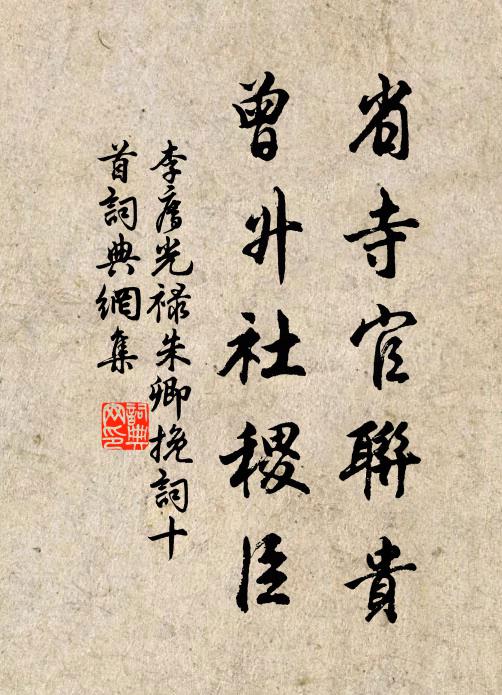 省寺官聯貴
曾升社稷臣
李膺光禄朱卿挽詞十
首詞典網集
詞典
网印